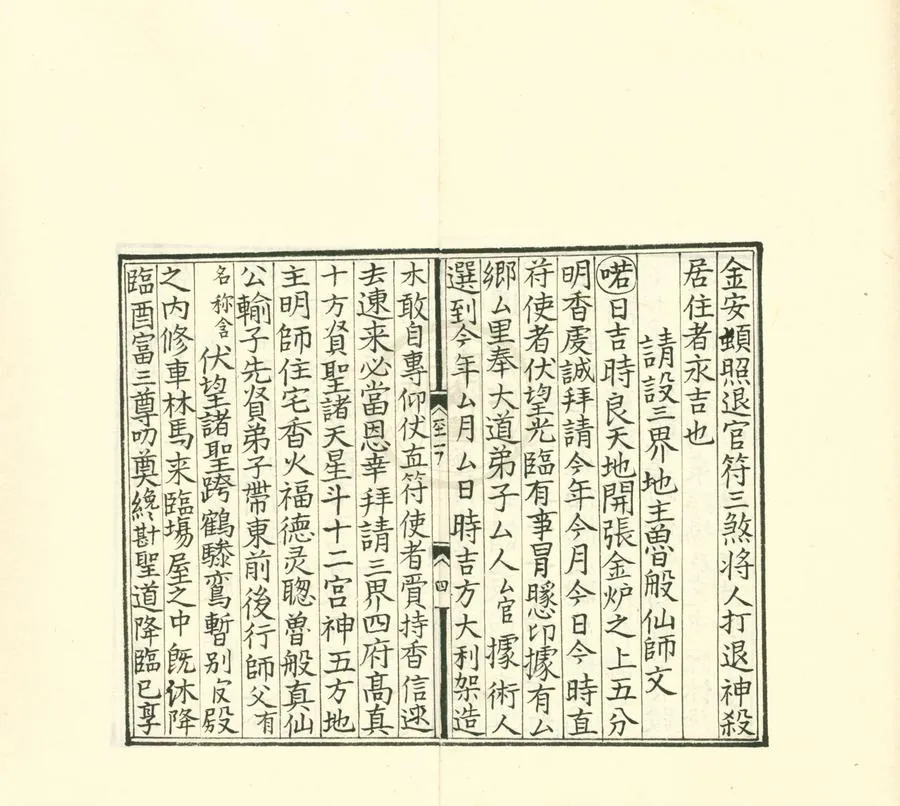 金安頓照退官符三煞将人打退神殺
居住者永吉也
請設三界地主魯般仙師文
喏日吉時良天地開張金炉之上五分
明香虔誠拜請今年今月今日今時直
符使者伏望光臨有事冒㦖卬據有厶
鄉厶里奉大道弟子厶人厶官據術人
選到今年厶月厶日時吉方大利架造
木敢自專仰仗直符使者賫持香信逕
去速来必當恩幸拜請三界四府髙真
十方賢聖諸天星斗十二宫神五方地
主明師住宅香火福德灵聦魯般真仙
公輸子先賢弟子帶東前後行師父有
名称舍伏望諸聖跨鶴驂鸞暫别宫殿
之内修車林馬来臨塲屋之中既沐降
臨酉富三尊叨奠纔斟聖道降臨已享
四